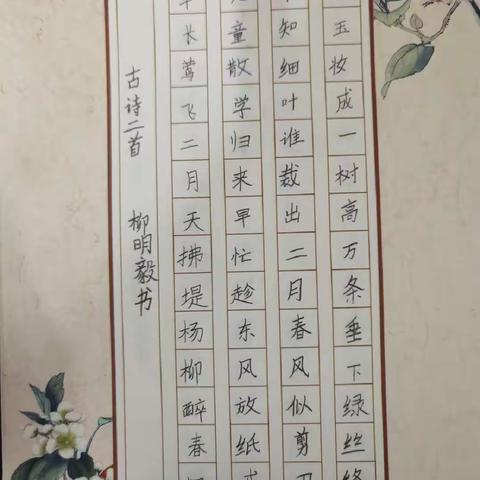 玉妆成一树高万条垂下绿丝绦
知细叶谁裁出二月春风似剪刀
童散学归来早忙趁东风放纸
长莺飞二月天拂堤杨柳醉春
古诗二首 柳明毅书